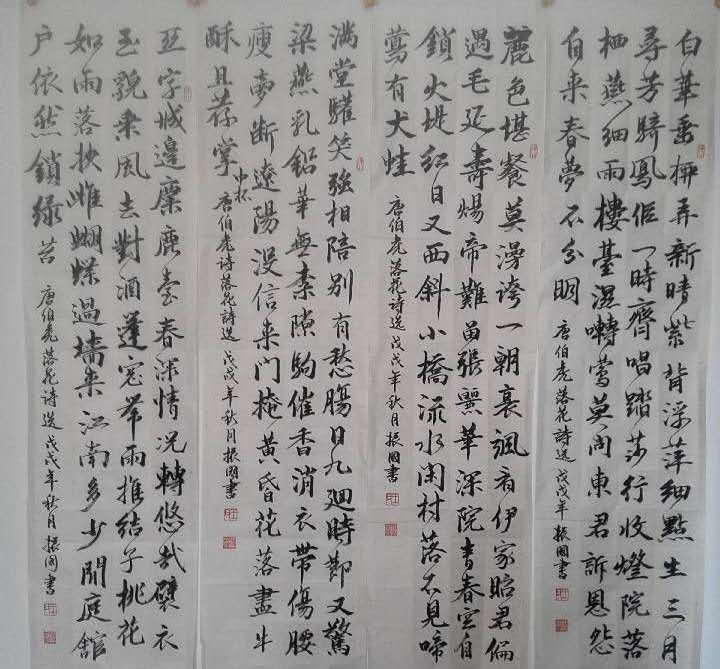 白華垂柳弄新晴紫背浮萍細點生三月
尋芳騎鳳侶一時齊唱踏莎行收燈院落
栖燕細雨樓臺濕囀鶯莫向東君訴恩怨
自来春夢不分明 唐伯虎落花詩選 戊戌年 振國書
麗色堪餐莫漫誇一朝衰颯看伊家昭君偏
遇毛延壽煬帝難留張麗華深院青春空自
鎖火堤紅日又西斜小橋流水閑村落不見啼
鶯有犬蛙 唐伯虎落花詩選 戊戌年秋月 振國書
滿堂歡笑強相陪別有愁腸日九迴時節又驚
梁燕乳鉛華無柰隙駒催香消衣帶傷腰
瘦夢斷遼陽沒信来門掩黃昏花落盡牛
酥且荐掌中杯 唐伯虎詩落花詩選 戊戌年秋月振國書
亞字城邊麋鹿臺春深情況轉悠哉襞衣
玉貌乘風去對酒蓬窓帶雨推結子桃花
如雨落挾雌蝴蝶過墻来江南多少閒庭館
户依然鎖綠苔 唐伯虎落花詩選 戊戌年秋月振國書